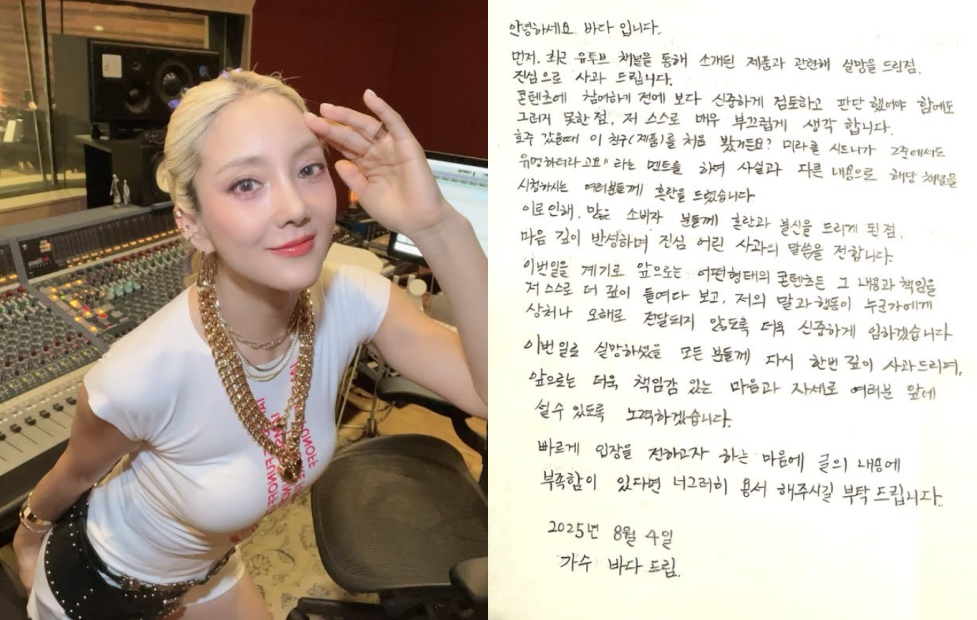 안녕하세요. 바다 입니다.
먼저, 최근 유튜브 채널을 통해 소개된 제품과 관련해 실망을 드린점,
진심으로 사과 드립니다.
콘텐츠에 참여하기 전에 보다 신중하게 검토하고 판단 했어야 함에도
그러지 못한 점, 저 스스로 매우 부끄럽게 생각 합니다.
호주 갔을때 이 친구(제품)를 처음 봤거든요? 미라클 시드니가 고준에서도
유명하더라고요" 라는 멘트를 하여 사실과 다른 내용으로 해당 채널을
시청하시는 여러분들께 혼란을 드렸습니다
이로 인해, 많은 소비자 분들께 혼란과 불신을 드리게 된점,
마음 깊이 반성하며 진심 어린 사과의 말씀을 전합니다.
이번일을 계기로 앞으로는 어떤형태의 콘텐츠든 그 내용과 책임을
저 스스로 더 깊이 들여다 보고, 저의 말과 행동이 누군가에게
상처나 오해로 전달되지 않도록 더욱 신중하게 임하겠습니다
이번 일로 실망하셨을 모든 분들께 다시 한번 깊이 사과드리며,
앞으로는 더욱 책임감 있는 마음과 자세로 여러분 앞에
설수 있도록 노력하겠습니다.
빠르게 입장을 전하고자 하는 마음에 글의 내용에
부족함이 있다면 너그러히 용서 해주시길 부탁 드립니다..
2025년 8월 4일
가수 바다 드림.